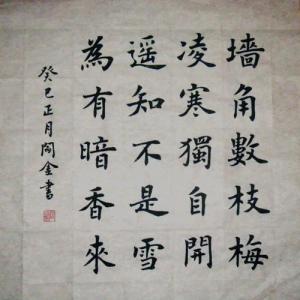 墙角數枝梅
凌寒獨自開
遥知不是雪
為有暗香來
癸巳正月陶金書